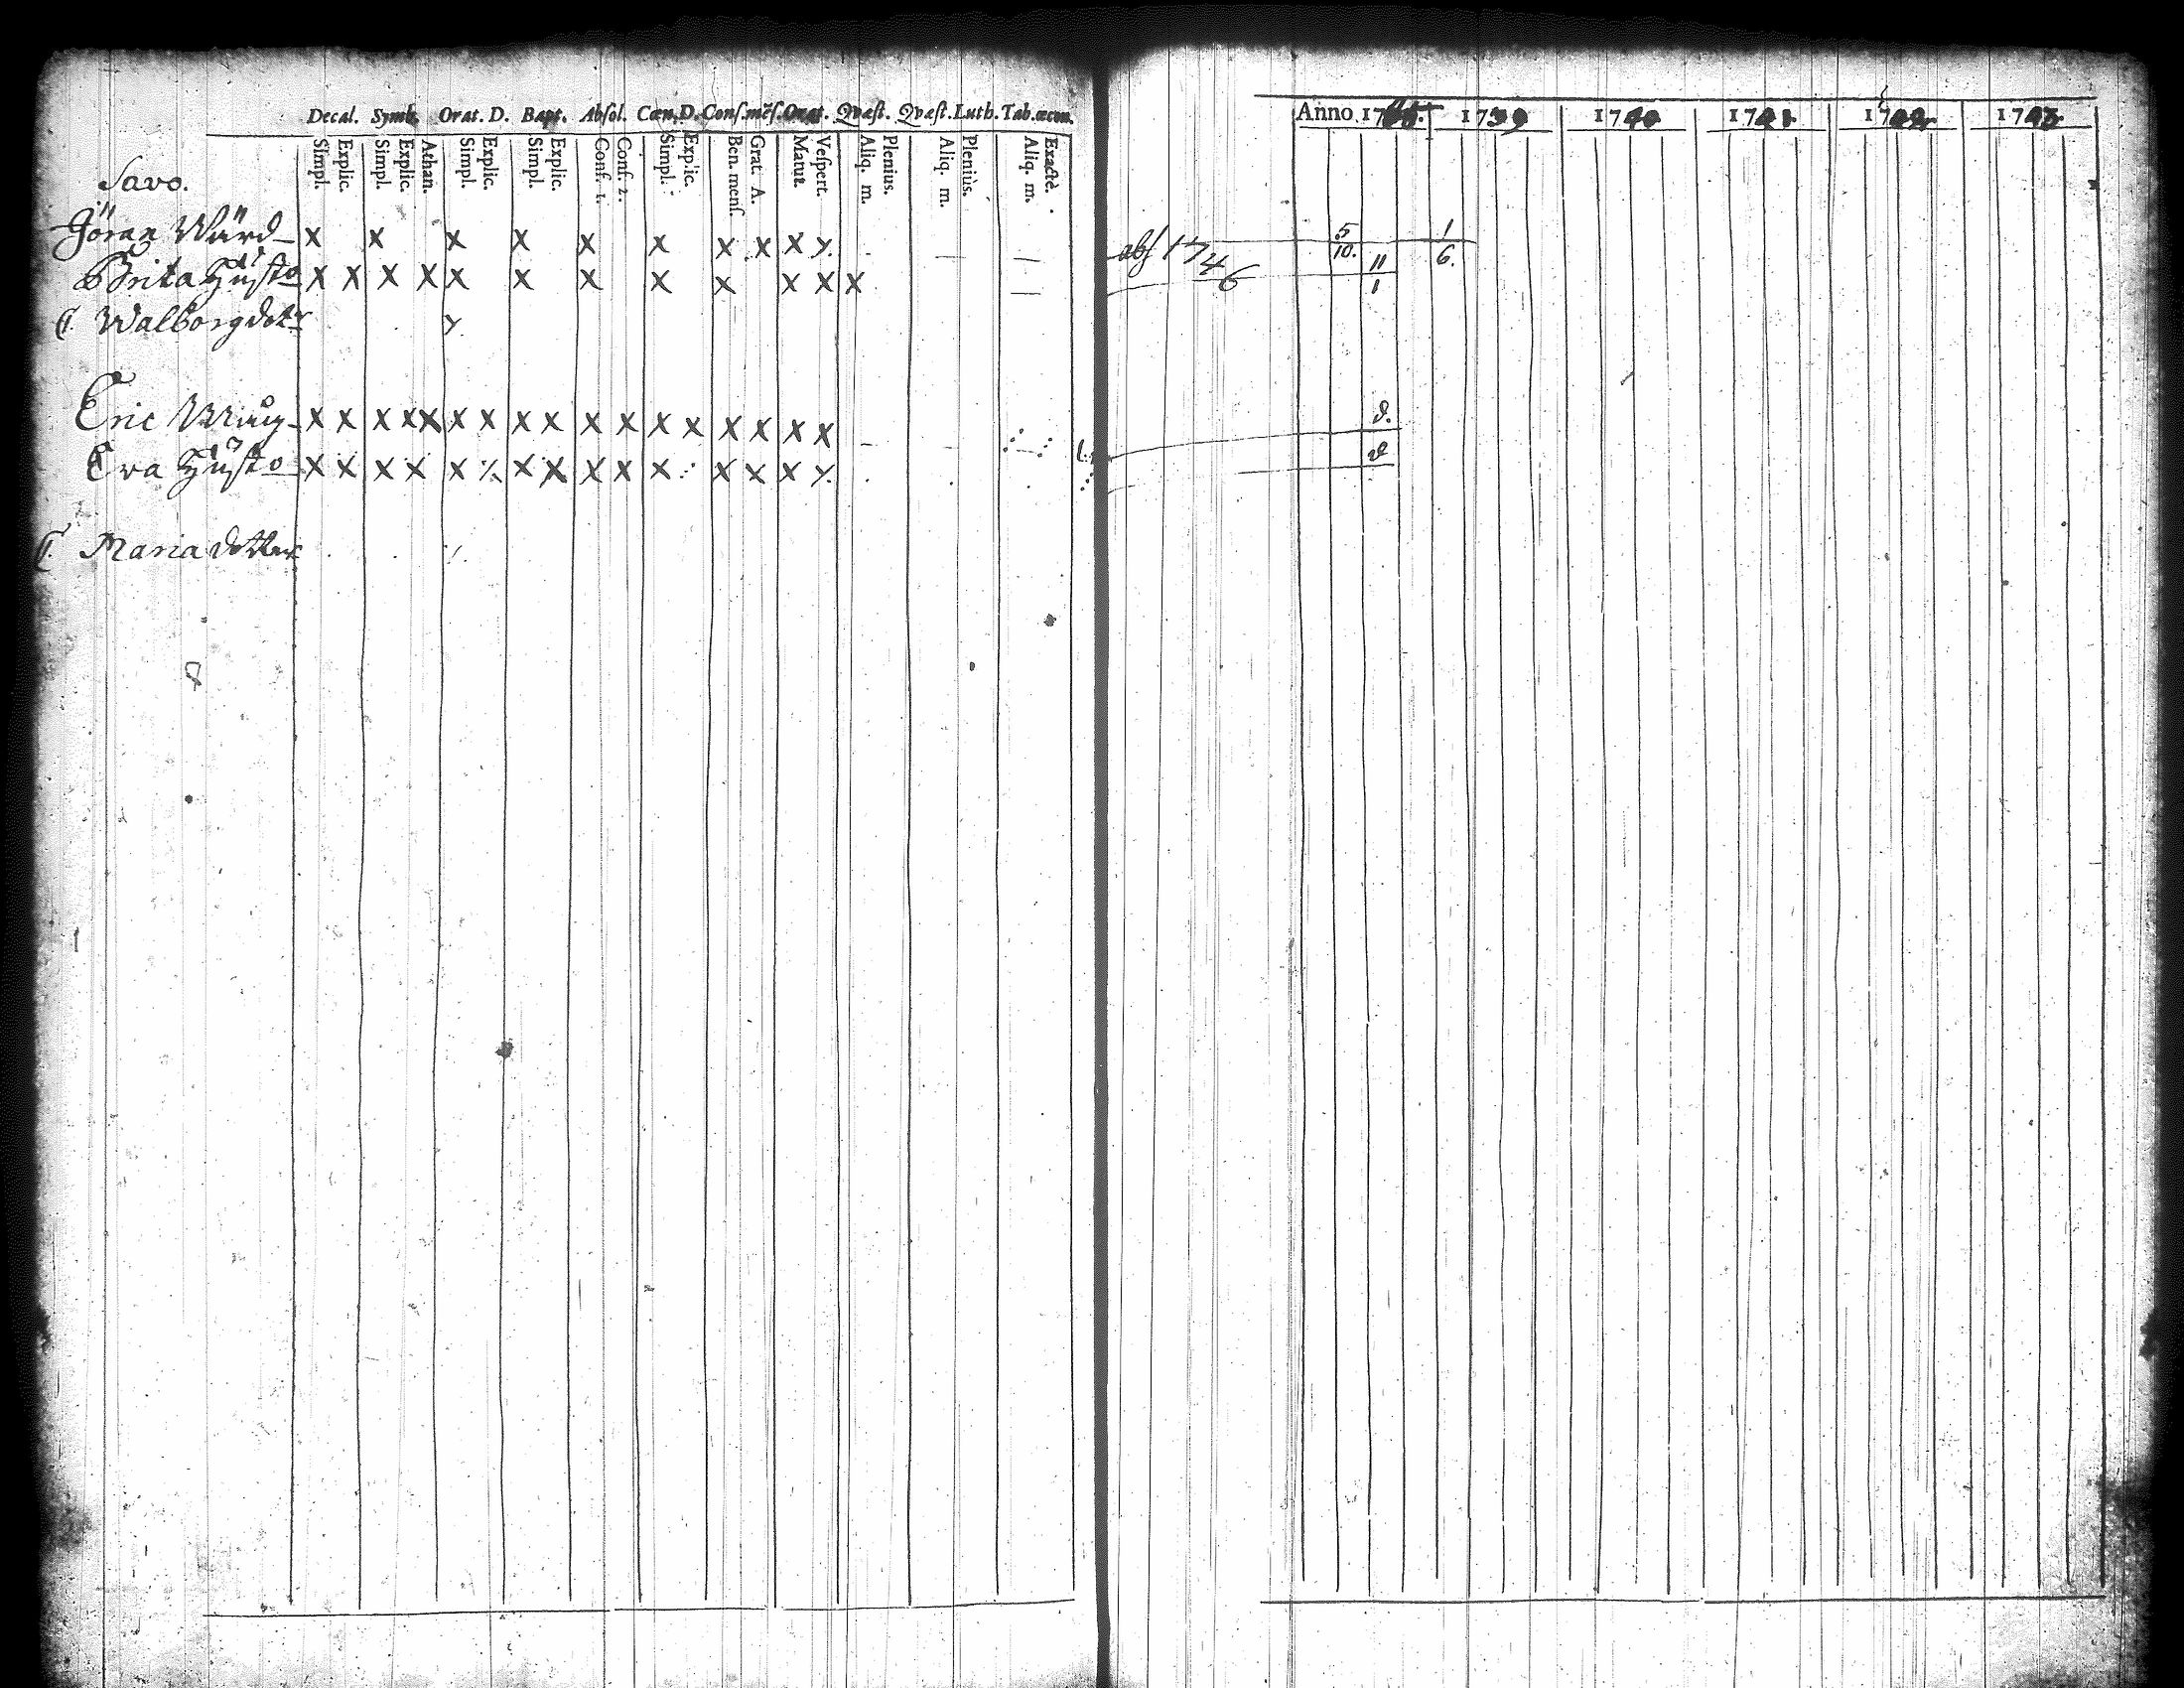 Decal. Symb. Orat. D. Bapt. Absol. Cœn. D. Conf. mēs. Orat. Qvæst. Qvæst. Luth. Tab. œcon.
Simpl. Explic. Simpl. Explic. Athan. Simpl. Explic. Simpl. Explic. Conf. 1. Conf. 2. Simpl. Explic. Ben. mens. Grat. A. Matut. Vespert. Aliq. m. Plenius. Aliq. m. Pleniùs. Aliq. m. Exactè.
Anno 17 1739 1740 1741 1742 1743
Savo.
Jöran Wärd x x x x x x x x x x
abs 1746 5/10. 1/6.
Brita Hust x x x x x x x x x x x x 11/1
C. Walborg dotr
Eric x x x x x x x x x x x x x x x x x d.
Eva Hust x x x x x x x x x x x x x d
C. Maria dotter